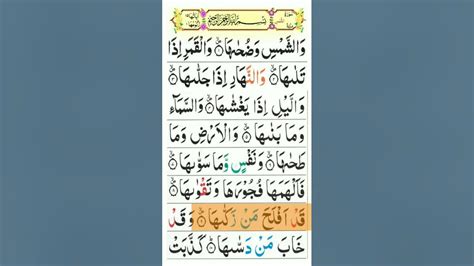 بِسْمِ اللّٰهِ الرَّحْمٰنِ الرَّحِیْمِ
وَالشَّمْسِ وَضُحٰىهَا ۪ۙ﴿۱﴾ وَالْقَمَرِ اِذَا
تَلٰىهَا ۪ۙ﴿۲﴾ وَالنَّهَارِ اِذَا جَلّٰىهَا ۪ۙ﴿۳﴾
وَالَّیْلِ اِذَا یَغْشٰىهَا ۪ۙ﴿۴﴾ وَالسَّمَآءِ
وَمَا بَنٰىهَا ۪ۙ﴿۵﴾ وَالْاَرْضِ وَمَا
طَحٰىهَا ۪ۙ﴿۶﴾ وَنَفْسٍ وَّمَا سَوّٰىهَا ۪ۙ﴿۷﴾
فَاَلْهَمَهَا فُجُوْرَهَا وَتَقْوٰىهَا ۪ۙ﴿۸﴾
قَدْ اَفْلَحَ مَنْ زَكّٰىهَا ۪ۙ﴿۹﴾ وَقَدْ
خَابَ مَنْ دَسّٰىهَا ؕ﴿۱۰﴾ كَذَّبَتْ